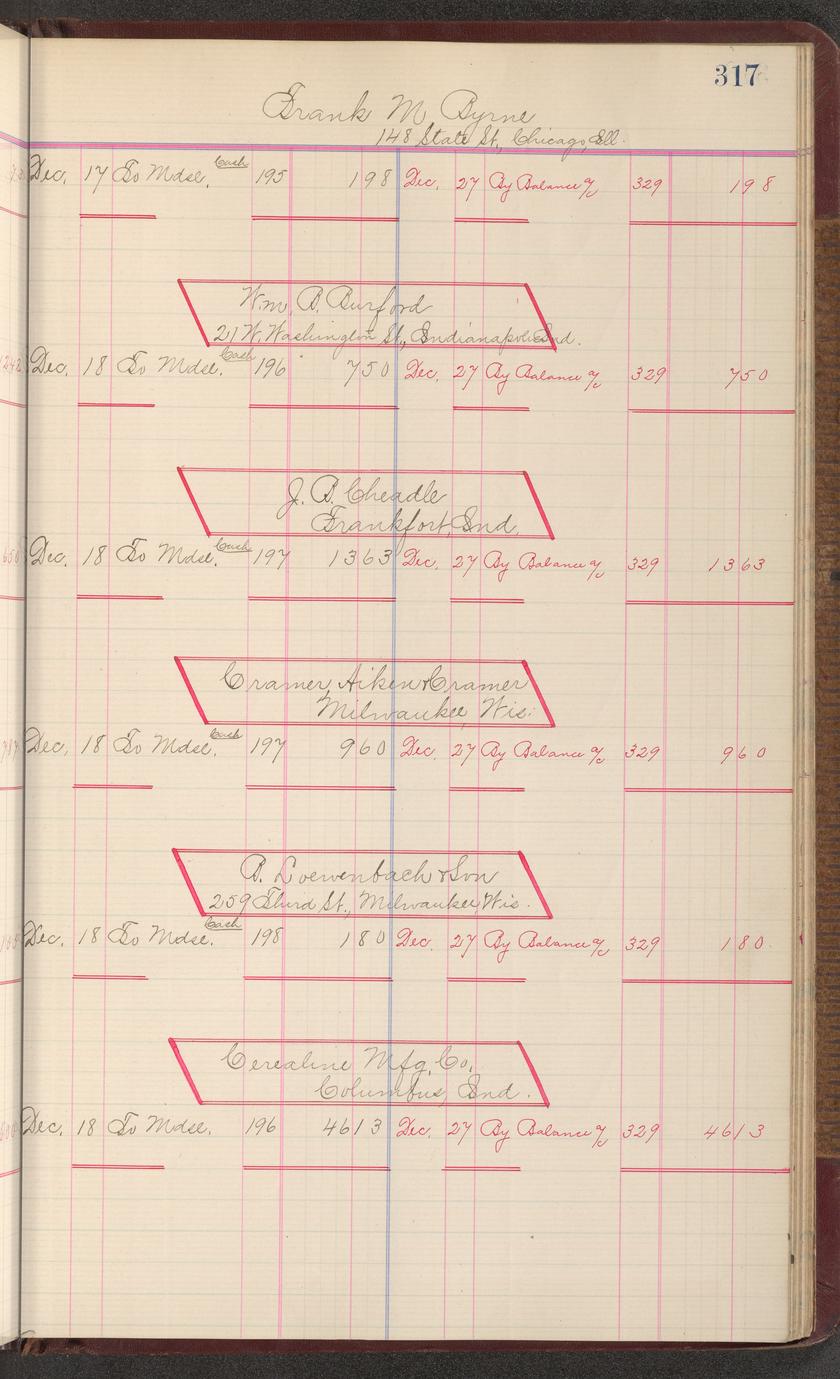 317
Frank M. Byrne
148 State St., Chicago, Ill.
Dec. 17 To Mdse. Cash 195 198 Dec. 27 By Balance a/c 329 198
Wm. B. Burford
21 W. Washington St., Indianapolis Ind.
Dec. 18 To Mdse. Cash 196 750 Dec. 27 By Balance a/c 329 750
J. B. Cheadle
Frankfort, Ind.
Dec. 18 To Mdse. Cash 197 1363 Dec. 27 By Balance a/c 329 1363
Cramer, Aiken & Cramer
Milwaukee, Wis.
Dec. 18 To Mdse. Cash 197 960 Dec. 27 By Balance a/c 329 960
B. Loewenbach & Son
259 Third St., Milwaukee, Wis.
Dec. 18 To Mdse. Cash 198 180 Dec. 27 By Balance a/c 329 180
Cerealine Mfg. Co.,
Columbus, Ind.
Dec. 18 To Mdse. 196 4613 Dec. 27 By Balance a/c 329 4613